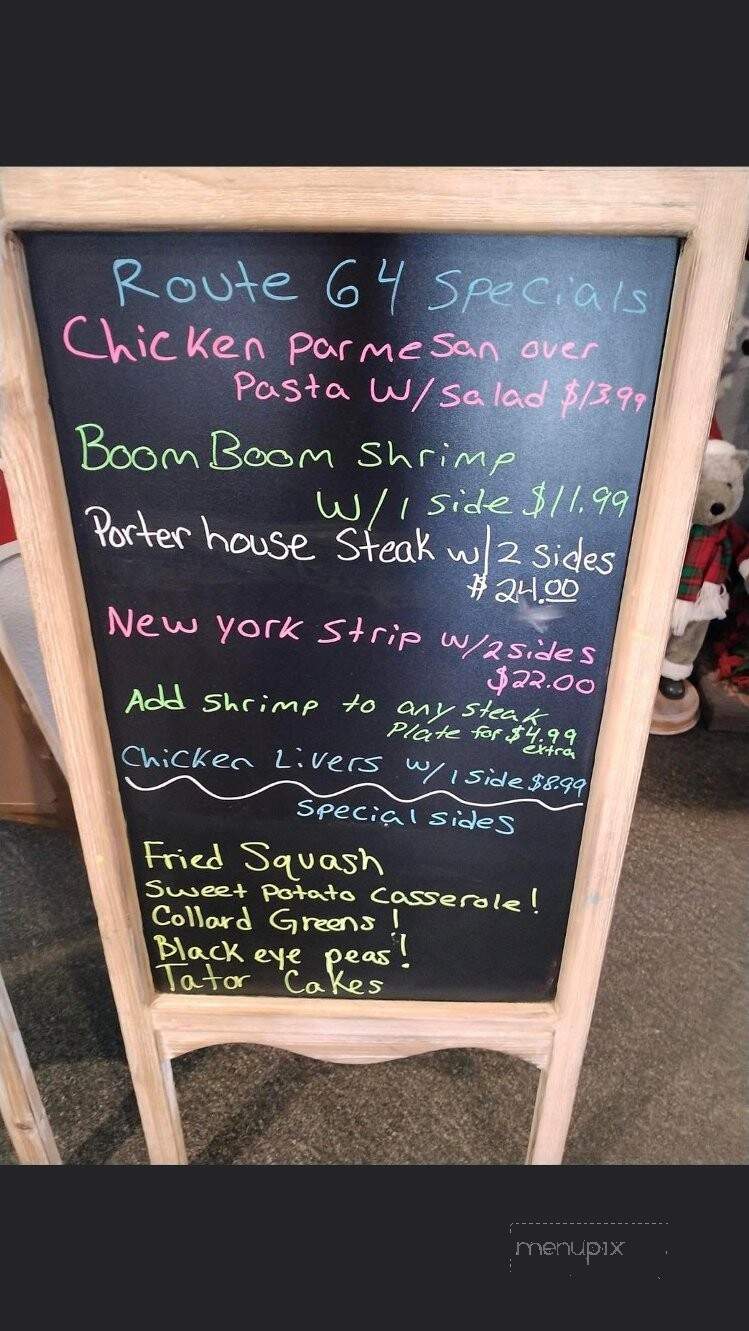 Route 64 Specials
Chicken Parmesan over
Pasta W/ Salad $13.99
Boom Boom Shrimp
W/ 1 side $11.99
Porter house Steak w/ 2 sides
$24.00
New york Strip w/ 2 sides
$22.00
Add Shrimp to any steak
Plate for $4.99
extra
Chicken Livers w/ 1 side $8.99
Special sides
Fried Squash
Sweet Potato Casserole!
Collard Greens!
Black eye peas!
Tator Cakes
menupix